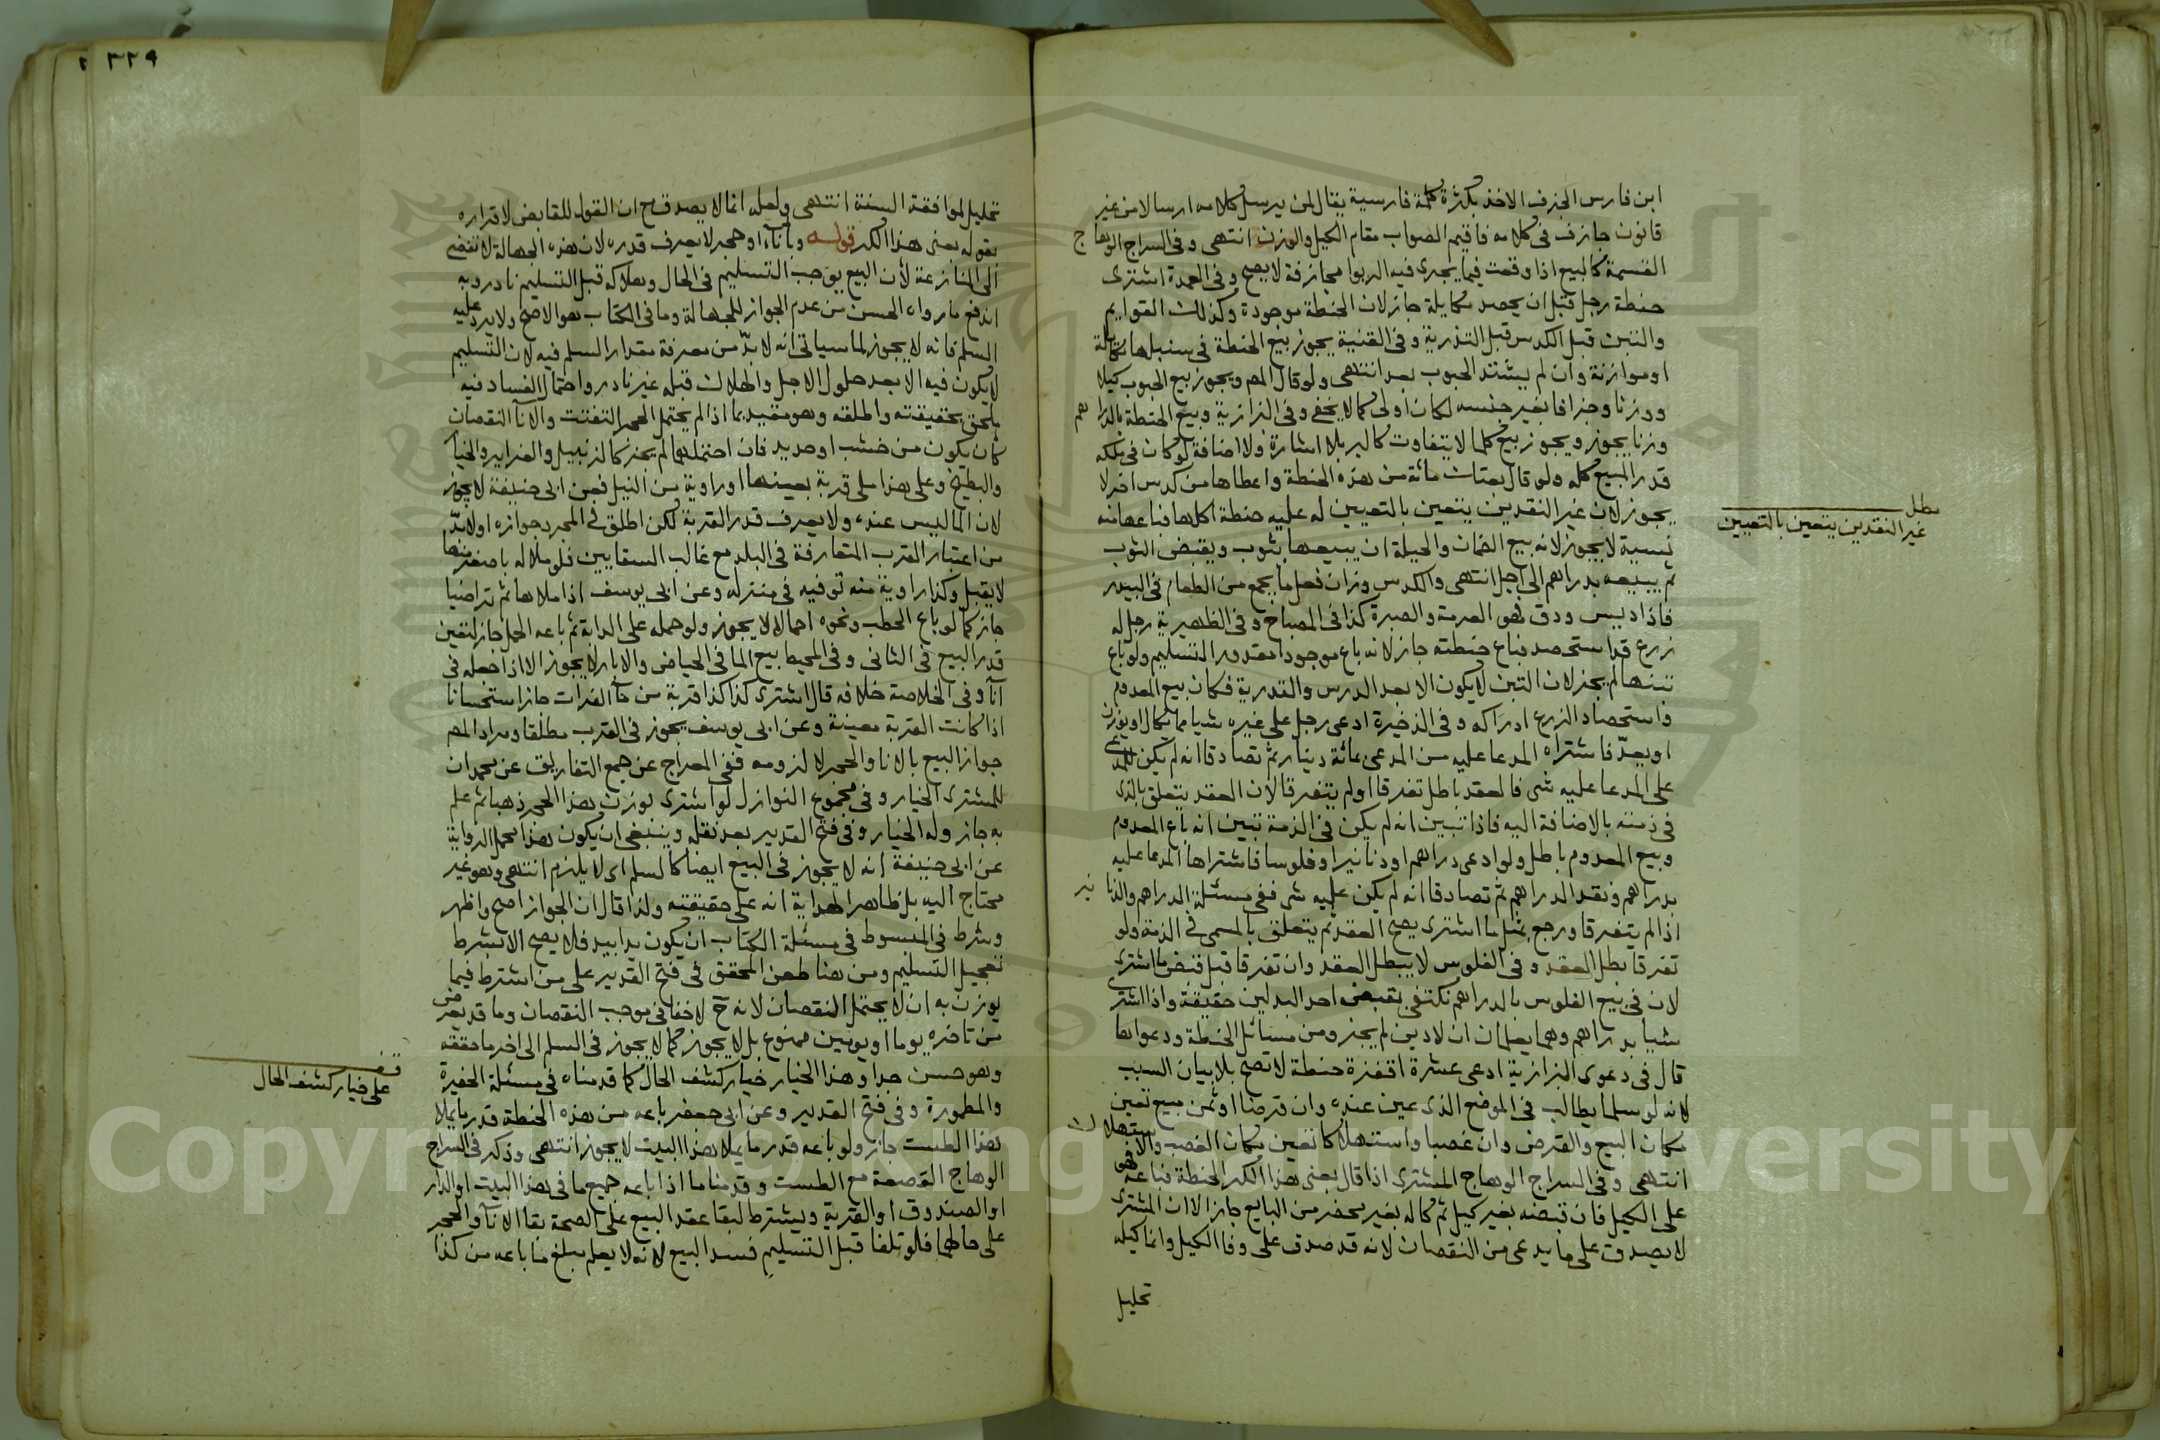 ابن فارس الجزف الاخذ بكثرة كلمة فارسية يقال لمن يرسل كلامه ارسالا من غير
قانون جازف فى كلامه فاقيم الصواب مقام الكيل والوزن انتهى وفى السراج الوهاج
القسمة كالبيع اذا وقعت فيما يجرى فيه الربوا مجازفة لا يصح وفى العمدة اشترى
حنطة رجل قبل ان يحصد مكايلة جاز لان الحنطة موجودة وكذلك القوايم
والتبن قبل الكدس قبل التذرية وفى القنية يجوز بيع الحنطة فى سنبلها مكايلة
او موازنة وان لم يشتد الحبوب بعد انتهى ولو قال المص ويجوز بيع الحبوب كيلا
ووزنا وجزافا بغير جنسه لكان اولى كما لا يخفى وفى البزازية وبيع الحنطة بالدراهم
وزنا يجوز ويجوز بيع كلما لا يتفاوت كالبر بلا اشارة ولا اضافة لو كان فى ملكه
قدر المبيع كله ولو قال بعتك مائة من هذه الحنطة واعطاها من كدس اخر لا
يجوز لان غير النقدين يتعين بالتعيين له عليه حنطة اكلها فباعها منه
مطلب
غير النقدين يتعين بالتعيين
نسية لا يجوز لانه بيع الضمان والحيلة ان يبيعها بثوب ويقبض الثوب
ثم يبيعه بدراهم الى اجل انتهى والكدس وزان فعل ما يجمع من الطعام فى البيدر
فاذا ديس ودق فهو العرمة والصبرة كذا فى المصباح وفى الظهيرية رجل له
زرع قد استحصد فباع حنطته جاز لانه باع موجودا مقدور التسليم ولو باع
تبنها لم يجز لان التبن لا يكون الا بعد الدرس والتذرية فكان بيع المعدوم
واستحصاد الزرع ادراكه وفى الذخيرة ادعى رجل على غيره شيا مما يكال او يوزن
او يعدّ فاشتراه المدعا عليه من المدعى بمائة دينار ثم تصادقا انه لم يكن للمدعى
على المدعا عليه شى فالعقد باطل تفرقا او لم يتفرقا لان العقد يتعلق بالذى
فى ذمته بالاضافة اليه فاذا تبين انه لم يكن فى الذمة تبين انه باع المعدوم
وبيع المعدوم باطل ولو ادعى دراهم او دنانيرا وفلوسا فاشتراها المدعا عليه
بدراهم ونقد الدراهم ثم تصادقا انه لم يكن عليه شى ففى مسئلة الدراهم والدنانير
اذا لم يتفرقا ورجع بمثل ما اشترى يصح العقد ثم يتعلق بالمسمى فى الذمة ولو
تفرقا بطل العقد وفى الفلوس لا يبطل العقد وان تفرقا قبل قبض ما اشترى
لان فى بيع الفلوس بالدراهم نكتفى بقبض احد البدلين حقيقة واذا اشترى
شيا بدراهم وهما يعلمان ان لا دين لم يجز ومن مسائل الحنطة ودعواها
قال فى دعوى البزازية ادعى عشرة اقفزة حنطة لا تصح بلا بيان السبب
لانه لو سلما يطالب فى الموضع الذى عين عنده وان قرضا او ثمن مبيع تعين
مكان البيع والقرض وان غصبا واستهلاكا تعين مكان الغصب والاستهلاك
انتهى وفى السراج الوهاج المشترى اذا قال بعنى هذا الكر الحنطة فباعه فهو
على الكيل فان قبضه بغير كيل ثم كاله بغير محضر من البايع جاز الا ان المشترى
لا يصدق على ما يدعى من النقصان لانه قد صدق على وفا الكيل وانما كيله
تحليل
٣٢٩
تحليل لموافقة السنة انتهى ولعله انما لا يصدق ح ان القول للقابض لاقراره
بقوله بعنى هذا الكر قوله وباناء او حجر لا يعرف قدره لان هذه الجهالة لا تفضى
الى المنازعة لأن البيع يوجب التسليم فى الحال وهلاكه قبل التسليم نادر وبه
اندفع ما رواه الحسن من عدم الجواز للجهالة وما فى الكتاب هو الاصح ولا يرد عليه
السلم فانه لا يجوز لما سياتى انه لا بدّ من معرفة مقدار السلم فيه لان التسليم
لا يكون فيه الا بعد حلول الاجل والهلاك قبله غير نادر واحتمال الفساد فيه
ملحق بحقيقته واطلقه وهو مقيد بما اذا لم يحتمل الحجر التفتت والانآ النقصان
كان يكون من خشب او حديد فان احتملهما لم يجز كالزنبيل والغراير والخيار
والبطيخ وعلى هذا ملى قربة بعينها او راوية من النيل فعن ابى حنيفة لا يجوز
لان الما ليس عنده ولا يعرف قدر القربة لكن اطلق فى المجرد جوازه او لا بدّ
من اعتبار القرب المتعارفة فى البلد مع غالب السقايين فلو ملا له باصغر منها
لا يقبل وكذا راوية منه توفيه فى منزله وعن ابى يوسف اذا ملاها ثم تراضيا
جاز كما لو باع الحطب ونحوه احمالا لا يجوز ولو حمله على الدابة ثم باعه الحمل جاز لتعين
قدر البيع فى الثانى وفى المحيط بيع الما فى الحياض والابار لا يجوز الا اذا جعله فى
انآ وفى الخلاصة خلافه قال اشترى كذا كذا قربة من مآ الفرات جاز استحسانا
اذا كانت القربة معينة وعن ابى يوسف يجوز فى القرب مطلقا ومراد المص
جواز البيع بالانا والحجر لا لزومه ففى المعراج عن جمع التفاريق عن محمد ان
للمشترى الخيار وفى مجموع النوازل لو اشترى بوزن هذا الحجر ذهبا ثم علم
به جاز وله الخيار وفى فتح القدير بعد نقله وينبغى ان يكون هذا محمل الرواية
عن ابى حنيفة انه لا يجوز فى البيع ايضا كالسلم اى لا يلزم انتهى وهو غير
محتاج اليه بل ظاهر الهداية انه على حقيقته ولذا قال ان الجواز اصح واظهر
وشرط فى المبسوط فى مسئلة الكتاب ان يكون يدا بيد فلا يصح الا بشرط
تعجيل التسليم ومن هنا طعن المحقق فى فتح القدير على من اشترط فيما
يوزن به ان لا يحتمل النقصان لانه ح لا خفا فى موجب النقصان وما قد يعرض
من تاخره يوما او يومين ممنوع بل لا يجوز كما لا يجوز فى السلم الى اخر ما حققه
وهو حسن جدا وهذا الخيار خيار كشف الحال كما قدمناه فى مسئلة الحفيرة
على خيار كشف الحال
والمطمورة وفى فتح القدير وعن ابى جعفر باعه من هذه الحنطة قدر ما يملا
هذا الطست جاز ولو باعه قدر ما يملا هذا البيت لا يجوز انتهى وذكر فى السراج
الوهاج القصعة مع الطست وقدمنا ما اذا باعه جميع ما فى هذا البيت او الدار
او الصندوق او القرية ويشترط لبقا عقد البيع على الصحة بقا الانآ والحجر
على حالهما فلو تلفا قبل التسليم فسد البيع لانه لا يعلم مبلغ ما باعه من كذا
Copyright © King Saud University